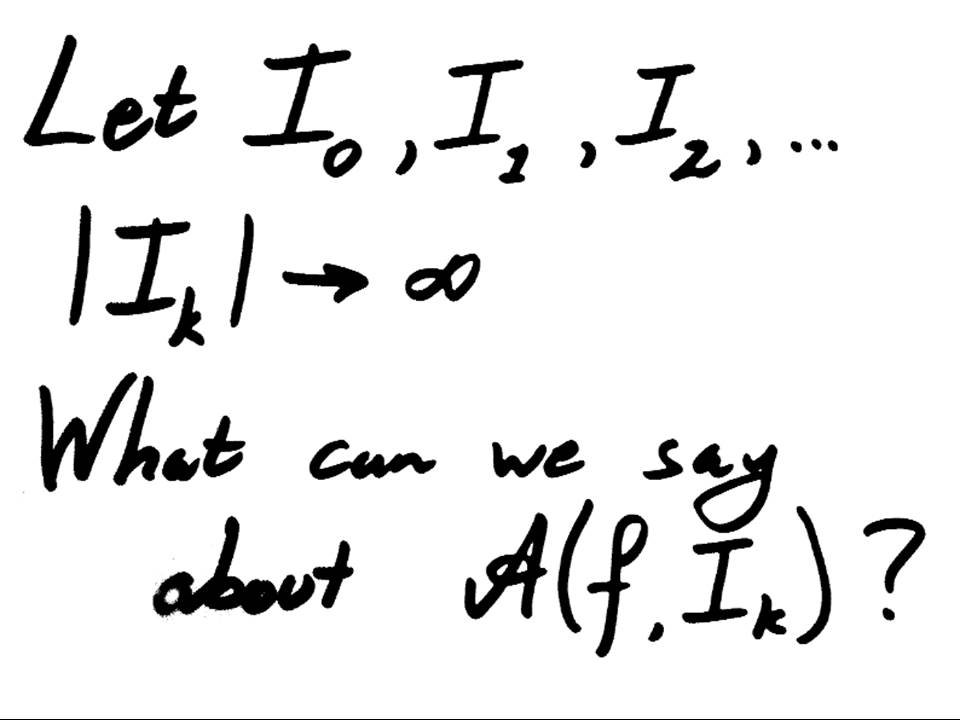 Let I₀, I₁, I₂, ...
|Iₖ| → ∞
What can we say
about A(f, Iₖ)?